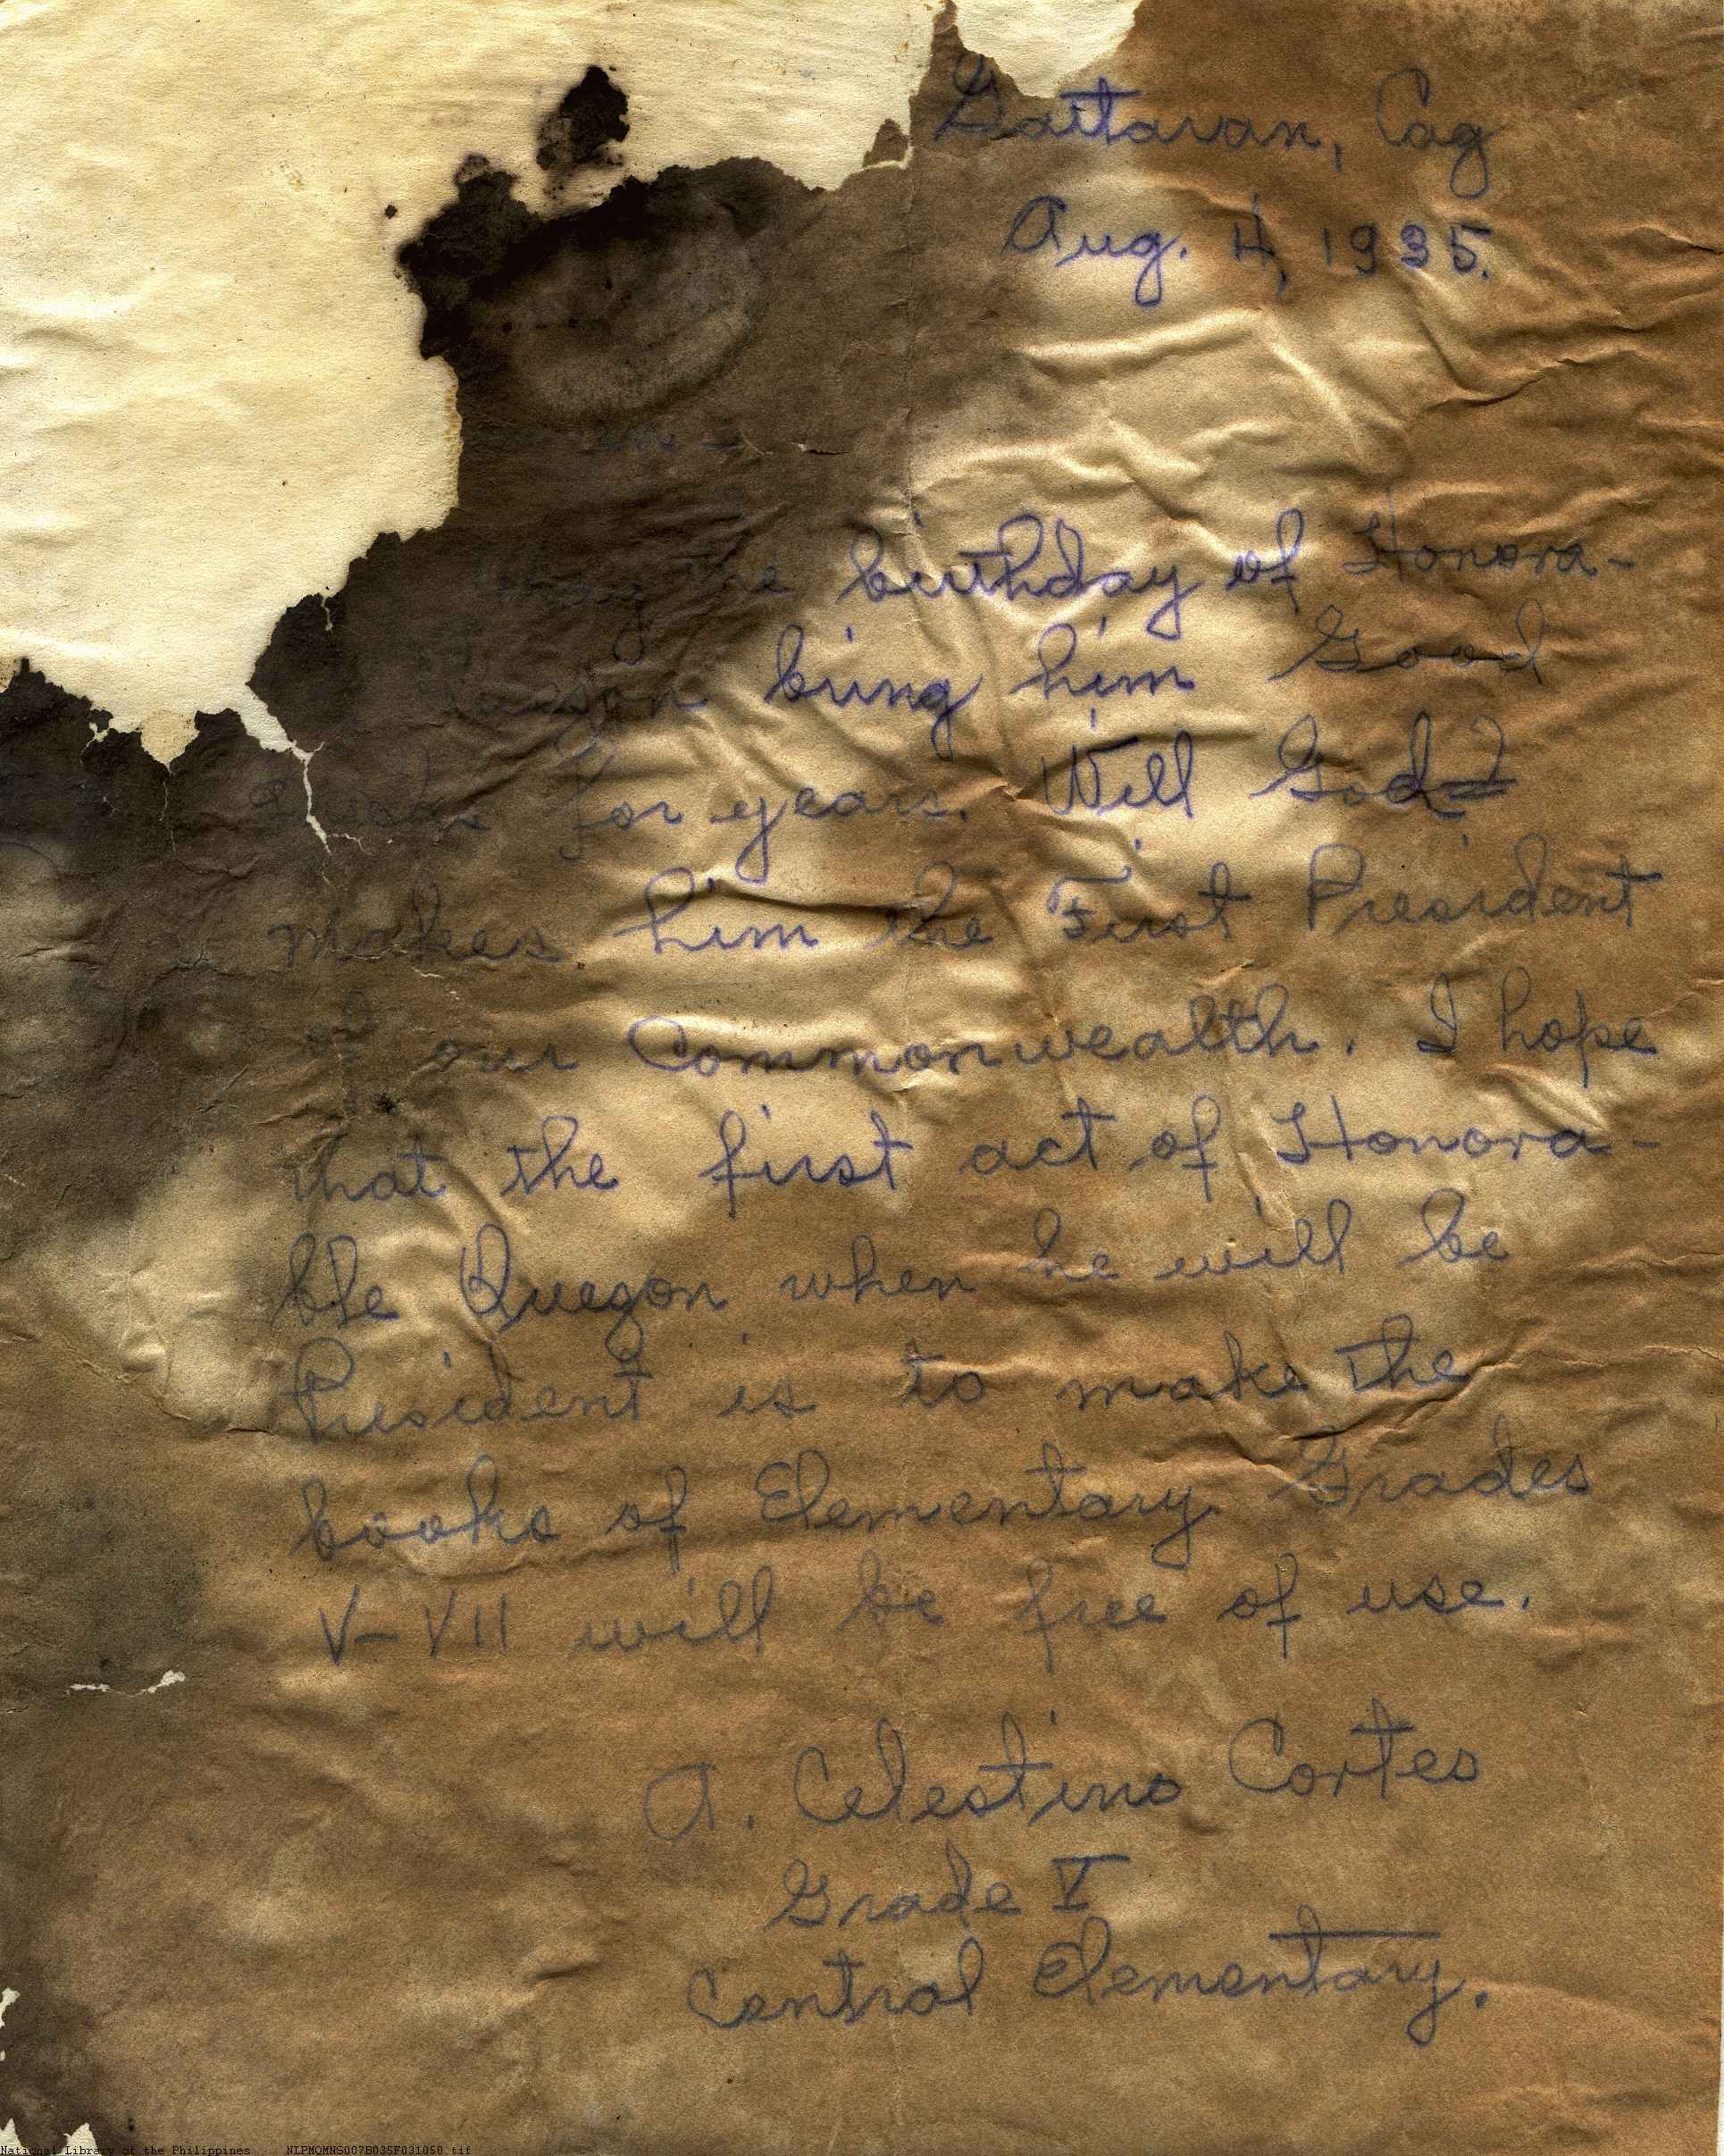 Gattaran, Cag
Aug. 4, 1935.
May the birthday of Honora-
Quezon bring him Good
for years. Will God?
makes him the First President
of our Commonwealth. I hope
that the first act of Honora-
ble Quezon when he will be
President is to make the
books of Elementary Grades
V-VII will be free of use.
A. Celestino Cortes
Grade V
Central Elementary.
National Library of the Philippines NLPMOMNS007B035F031050.tif